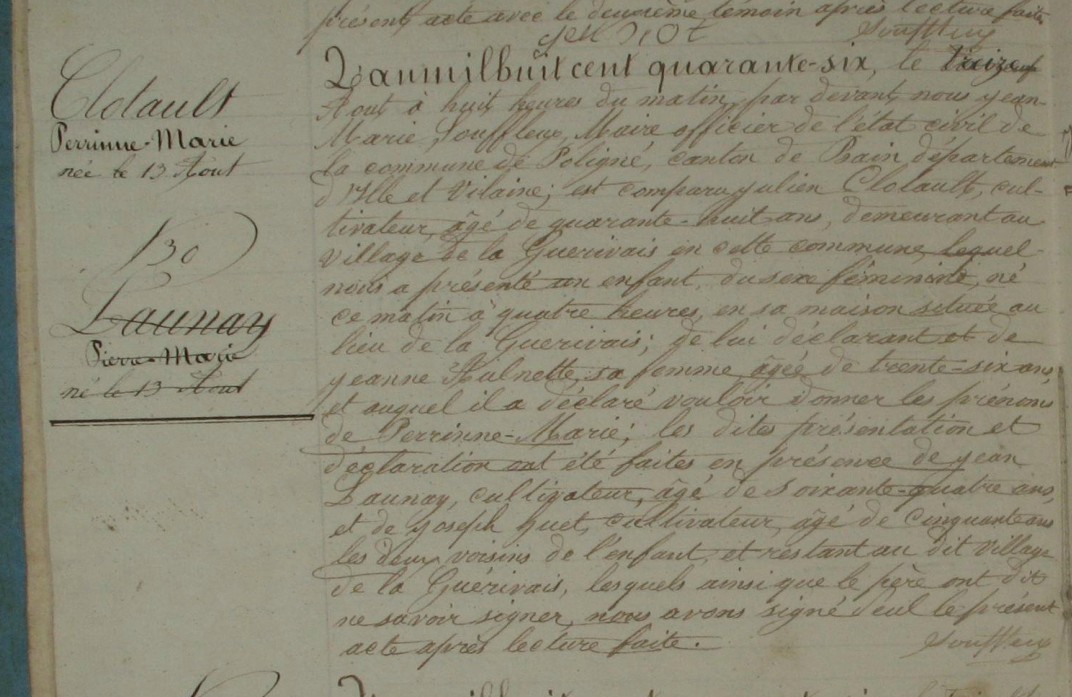 présent acte avec le deuxième témoin après lecture faite
Clotault
Perrinne-Marie
née le 13 Août
130
Launay
Pierre-Marie
né le 13 Août
L'an mil huit cent quarante-six, le treize
Aout à huit heures du matin, par devant nous jean-
Marie Souffleux, Maire officier de l'état civil de
la commune de Poligné, canton de Bain, département
d'Ille et Vilaine; est comparu julien Clotault, cul-
tivateur, âgé de quarante-huit ans, demeurant au
village de la Guerivais en cette commune, lequel
nous a présenté un enfant, du sexe féminine, né
ce matin à quatre heures, en sa maison située au
lieu de la Guerivais; de lui déclarant et de
jeanne Hulnette, sa femme âgée de trente-six ans,
et auquel il a déclaré vouloir donner les prénoms
de Perrinne-Marie; les dites présentation et
déclaration ont été faites en présence de jean
Launay, cultivateur, âgé de soixante-quatre ans,
et de joseph huet, cultivateur, âgé de cinquante ans
les deux voisins de l'enfant, et restant au dit village
de la Guérivais, lesquels ainsi que le père ont dit
ne savoir signer, nous avons signé seul le présent
acte après lecture faite.
Souffleux